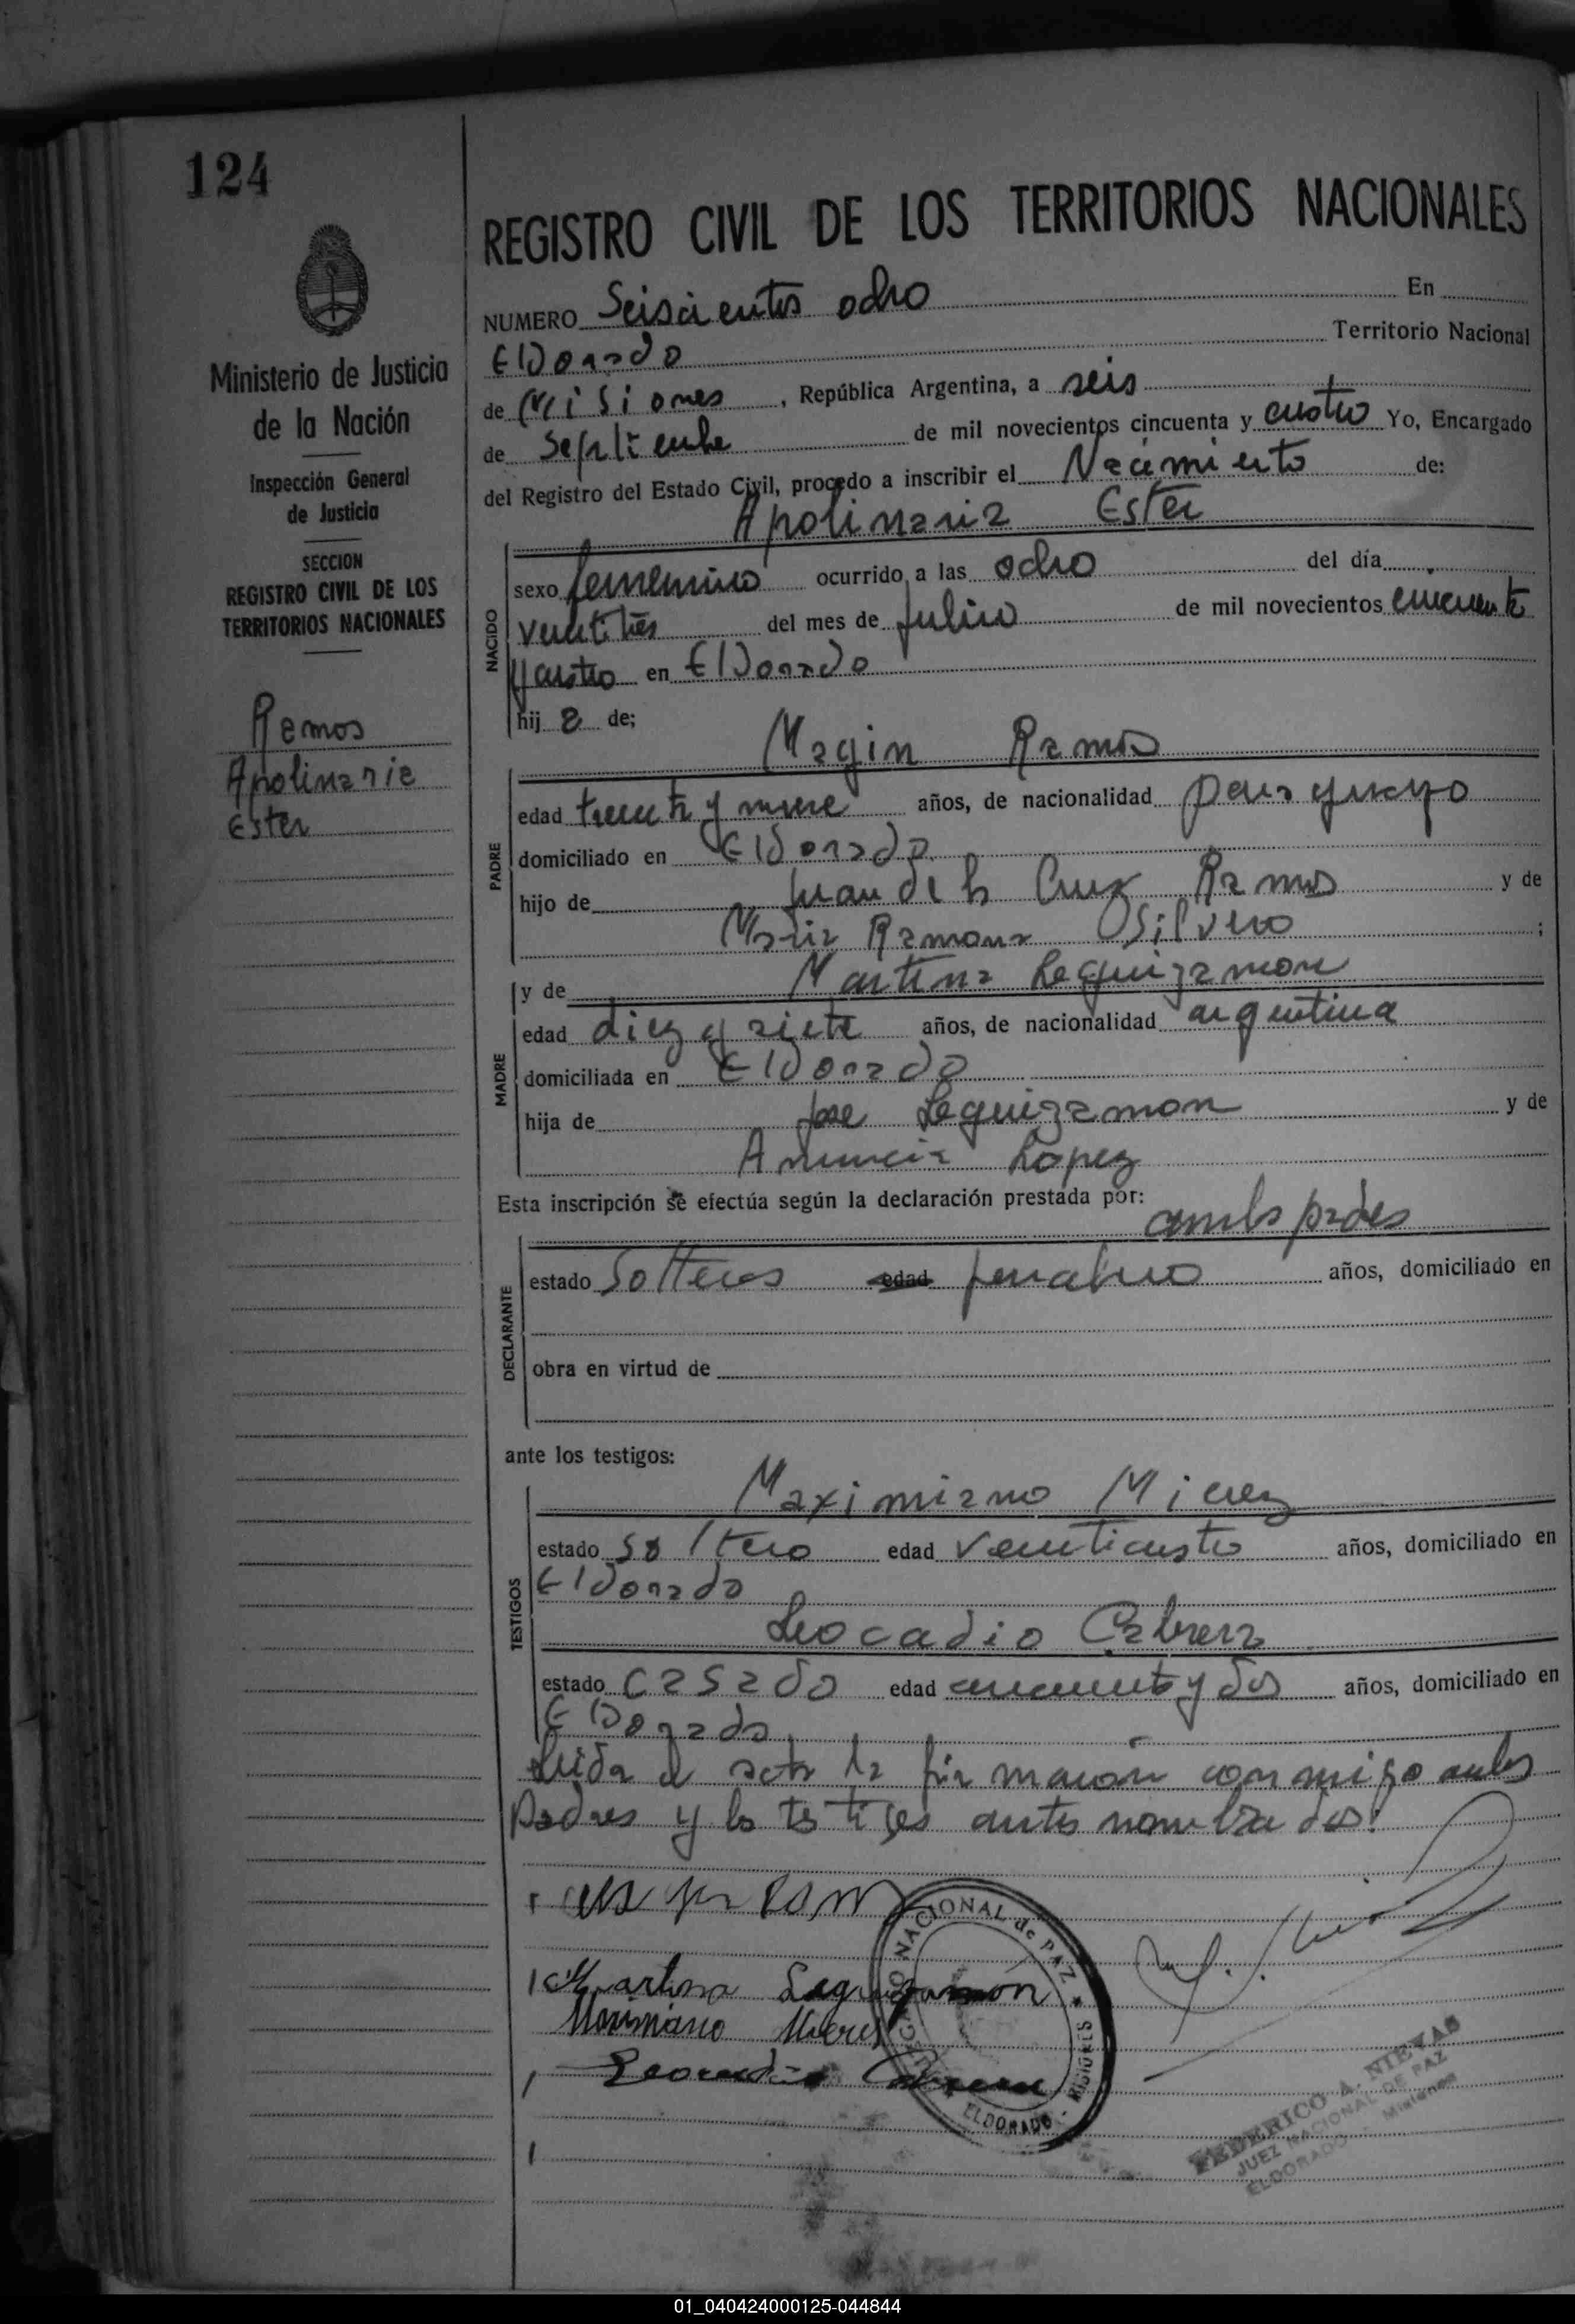 124
REGISTRO CIVIL DE LOS TERRITORIOS NACIONALES
Ministerio de Justicia
de la Nación
Inspección General
de Justicia
SECCION
REGISTRO CIVIL DE LOS
TERRITORIOS NACIONALES
Ramos
Apolinaria
Ester
NUMERO Seiscientos ocho En
ElDorado Territorio Nacional
de Misiones, República Argentina, a seis
de Septiembre de mil novecientos cincuenta y cuatro Yo, Encargado
del Registro del Estado Civil, procedo a inscribir el Nacimiento de:
Apolinaria Ester
NACIDO
sexo femenino ocurrido a las ocho del día
veintitres del mes de Julio de mil novecientos cincuenta
y cuatro en ElDorado
hij a de;
Magin Ramos
PADRE
edad treinta y nueve años, de nacionalidad paraguayo
domiciliado en ElDorado
hijo de Juan de la Cruz Ramos y de
Maria Ramona Silvero;
y de Martina Leguizamon
MADRE
edad diez y siete años, de nacionalidad argentina
domiciliada en ElDorado
hija de Jose Leguizamon y de
Anuncia Lopez
Esta inscripción se efectúa según la declaración prestada por:
ambos padres
DECLARANTE
estado Solteros edad años, domiciliado en
obra en virtud de
ante los testigos:
TESTIGOS
Maximiano Mierez
estado soltero edad veinticuatro años, domiciliado en
ElDorado
Leocadio Cabrera
estado casado edad cincuenta y dos años, domiciliado en
ElDorado
Leida el acta la firmaron conmigo ambos
padres y los testigos antes nombrados.
Martina Leguizamón
Maximiano Mierez
Leocadio Cabrera
JUZGADO NACIONAL de PAZ
ELDORADO - MISIONES
FEDERICO A. NIEVAS
JUEZ NACIONAL DE PAZ
ELDORADO - Misiones
01_040424000125-044844